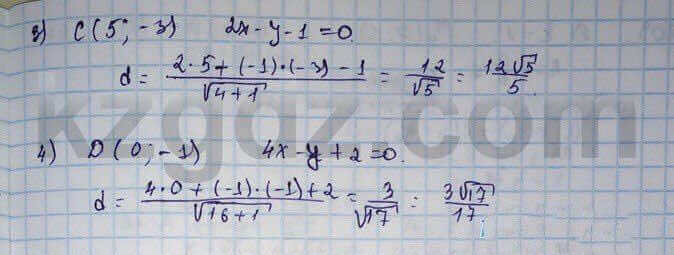 3) C(5; -3) 2x - y - 1 = 0.
d = (2·5 + (-1)·(-3) - 1)/√(4+1) = 12/√5 = 12√5/5.
kzgdz.com
4) D(0; -1) 4x - y + 2 = 0.
d = (4·0 + (-1)·(-1) + 2)/√(16+1) = 3/√17 = 3√17/17.